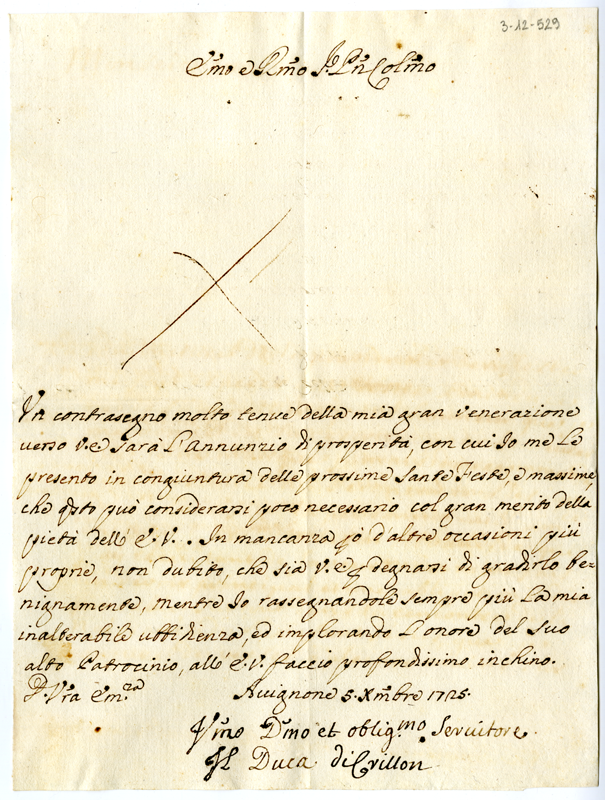 3-12-529
Emo e Rmo Sr. Prn Colmo
Un contrasegno molto tenue della mia gran venerazione
verso V.E sarà L'annunzio di prosperità, con cui Io me Le
presento in congiuntura delle prossime Sante Feste, e massime
che qsto può considerarsi poco necessario col gran merito della
pietà dell' E.V.. In mancanza però d'altre occasioni più
proprie, non dubito, che sia V.E per degnarsi di gradirlo be-
nignamente, mentre Io rassegnandole sempre più La mia
inalterabile ubbidienza, ed implorando L'onore del suo
alto Patrocinio, all' E.V. faccio profondissimo inchino.
D. Vra Em.za Avignone 5. Xmbre 1725.
Vmo Dmo et oblig.mo Servitore
Il Duca di Crillon